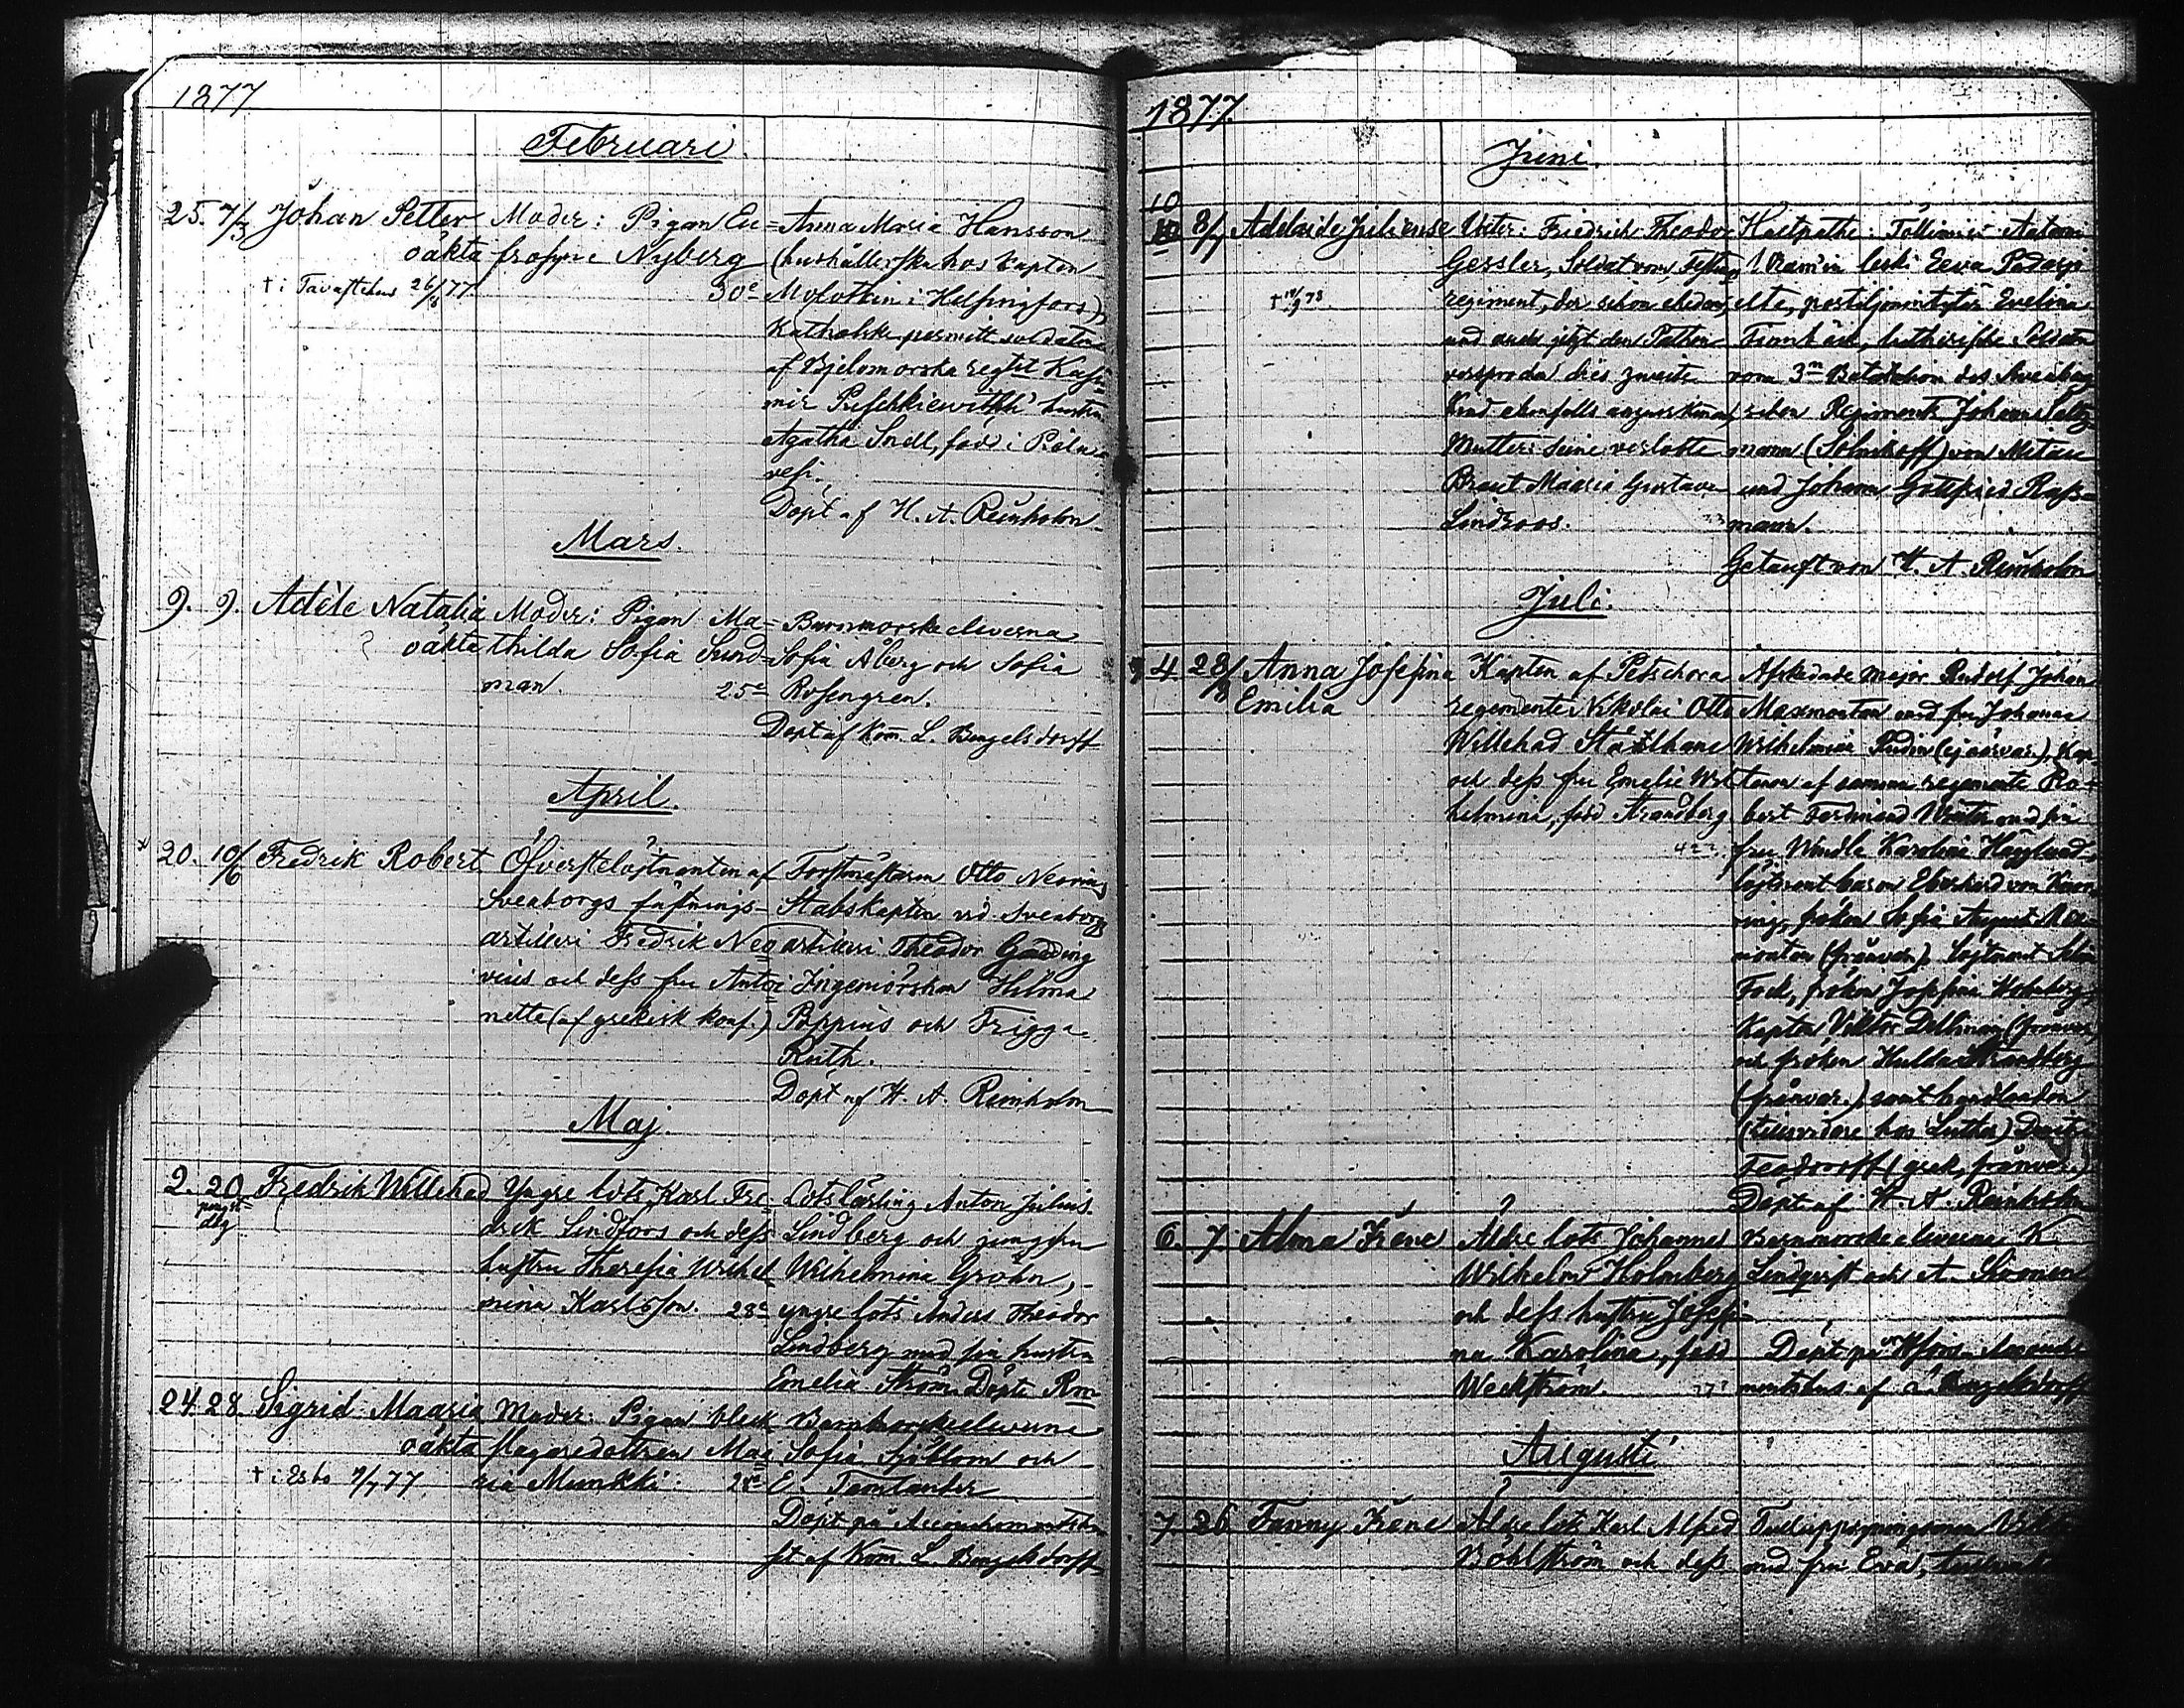 1877
Februari
25. 7/3 Johan Petter Moder: Pigan Eu=
oäkta frosyne Nyberg
† i Tavastehus 26/8 77. 30 a
Anna Maria Hansson
(hushållerska hos Kapten
Molotkin i Helsingfors),
Katholske permitt. soldaten
af Bjelomorska reg:tet Kasi-
mir hustru
Agatha Snell, född i Piela-
vesi.
Döpt af H. A. Reinholm
Mars.
9. 9. Adèle Natalia Moder: Pigan Ma=
oäkta thilda Sofia Sund=
man. 25 a
Barnmorskeeleverna
Sofia Åberg och Sofia
Rosengren.
Döpt af Kom. L. Bengelsdorff
April.
20. 10/6 Fredrik Robert Öfverstelöjtnanten af
Sveaborgs fästnings-
artilleri Fredrik Neo=
vius och dess fru Antoi
nette (af grekisk konf.)
Forstmästaren Otto Neovius
Stabskapten vid Sveaborgs
artilleri Theodor Gadding
Ingeniörskan Hilma
Poppius och Frigga
Ruth.
Döpt af H. A. Reinholm
Maj.
2. 20 Fredrik Willehad Yngre lots Karl Fre-
pingst=
dag
drik Lindfors och dess
hustru Theresia Wilhel
mina Karlsson. 28 a
Lotslärling Anton Julius
Lindberg och jungfru
Wilhelmina Gröhn,
yngre lots Anders Theodor
Lindberg med sin hustru
Emelia Ström. Döpte Rm
24. 28. Sigrid Maaria Moder: Pigan bleck
oäkta slagaredottren Maa
† i Esbo 7/7 77 ria Munkki: 28 a
Barnmorskeeleverna
Sofia Sjöblom och
E. Tamlander
Döpt på Accouchementshu
set af Kom. L. Bengelsdorff
1877.
Juni.
10
10 8/7 Adelaide Juliense Vater: Friedrich Theodor
Gessler, Soldat vom Festungs
† 14/9 78. regiment, der schon ehedem,
und auch jetzt dem Pathen
versprochen dies zweite
Kind ebenfalls anzuerkennen,
Mutter: seine verlobte
Braut Maaria Gustava
Lindroos.
Haltpathe: Töllimies Aatam
leski Eeva
elte, postiljonintytär Evelina
lutherische Soldaten
vom 3m Bataillon des Sveaborg
schen Regiments Johann Saltz
mann (Solnikoff) von Mitau
und Johann Gottfried Rass=
mann.
Getauft von H. A. Reinholm
Juli.
4 28/8 Anna Josefina
Emilia
Kapten af Petschora
regemente Nikolai Otto
Willehad Stålhane
och dess fru Emelie Wil
helmina, född Strandberg
Afskedade major Rudolf Johan
Maxmontan med fru Johanna
Wilhelmina Rudin (ej närvar.), Kap
tenen af samma regemente Ro=
bert Ferdinand Winter med sin
fru Wendla Karolina Hägglund,
löjtnant baron Eberhard von Kna=
ring, fröken Sofia August Max
montan (frånvar.) löjtnant
Fock, fröken Josefina Holmberg,
Kapten Viktor Dellman (frånvar.)
och fröken Hulda Strandberg
(frånvar.) samt handlanden
(tillsvidare hos Luther)
Feodoroff (grek, frånvar.)
Döpt af H. A. Reinholm
6. 7 Alma Irene Äldre lots Johannes
Wilhelm Holmberg
och dess hustru Josefi
na Karolina, född
Weckström.
Barnmorskeeleverna K.
Lindqvist och A. Siivonen
Döpt på Hfors Accouche
mentshus af L. Bengelsdorff
Augusti
7 26 Fanny Irene Äldre lots Karl Alfred
Böhlström och dess
Tulluppsyningsman
med fru Eva,